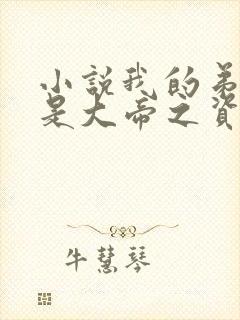 小説我的弟
是大帝之資
牛慧琴